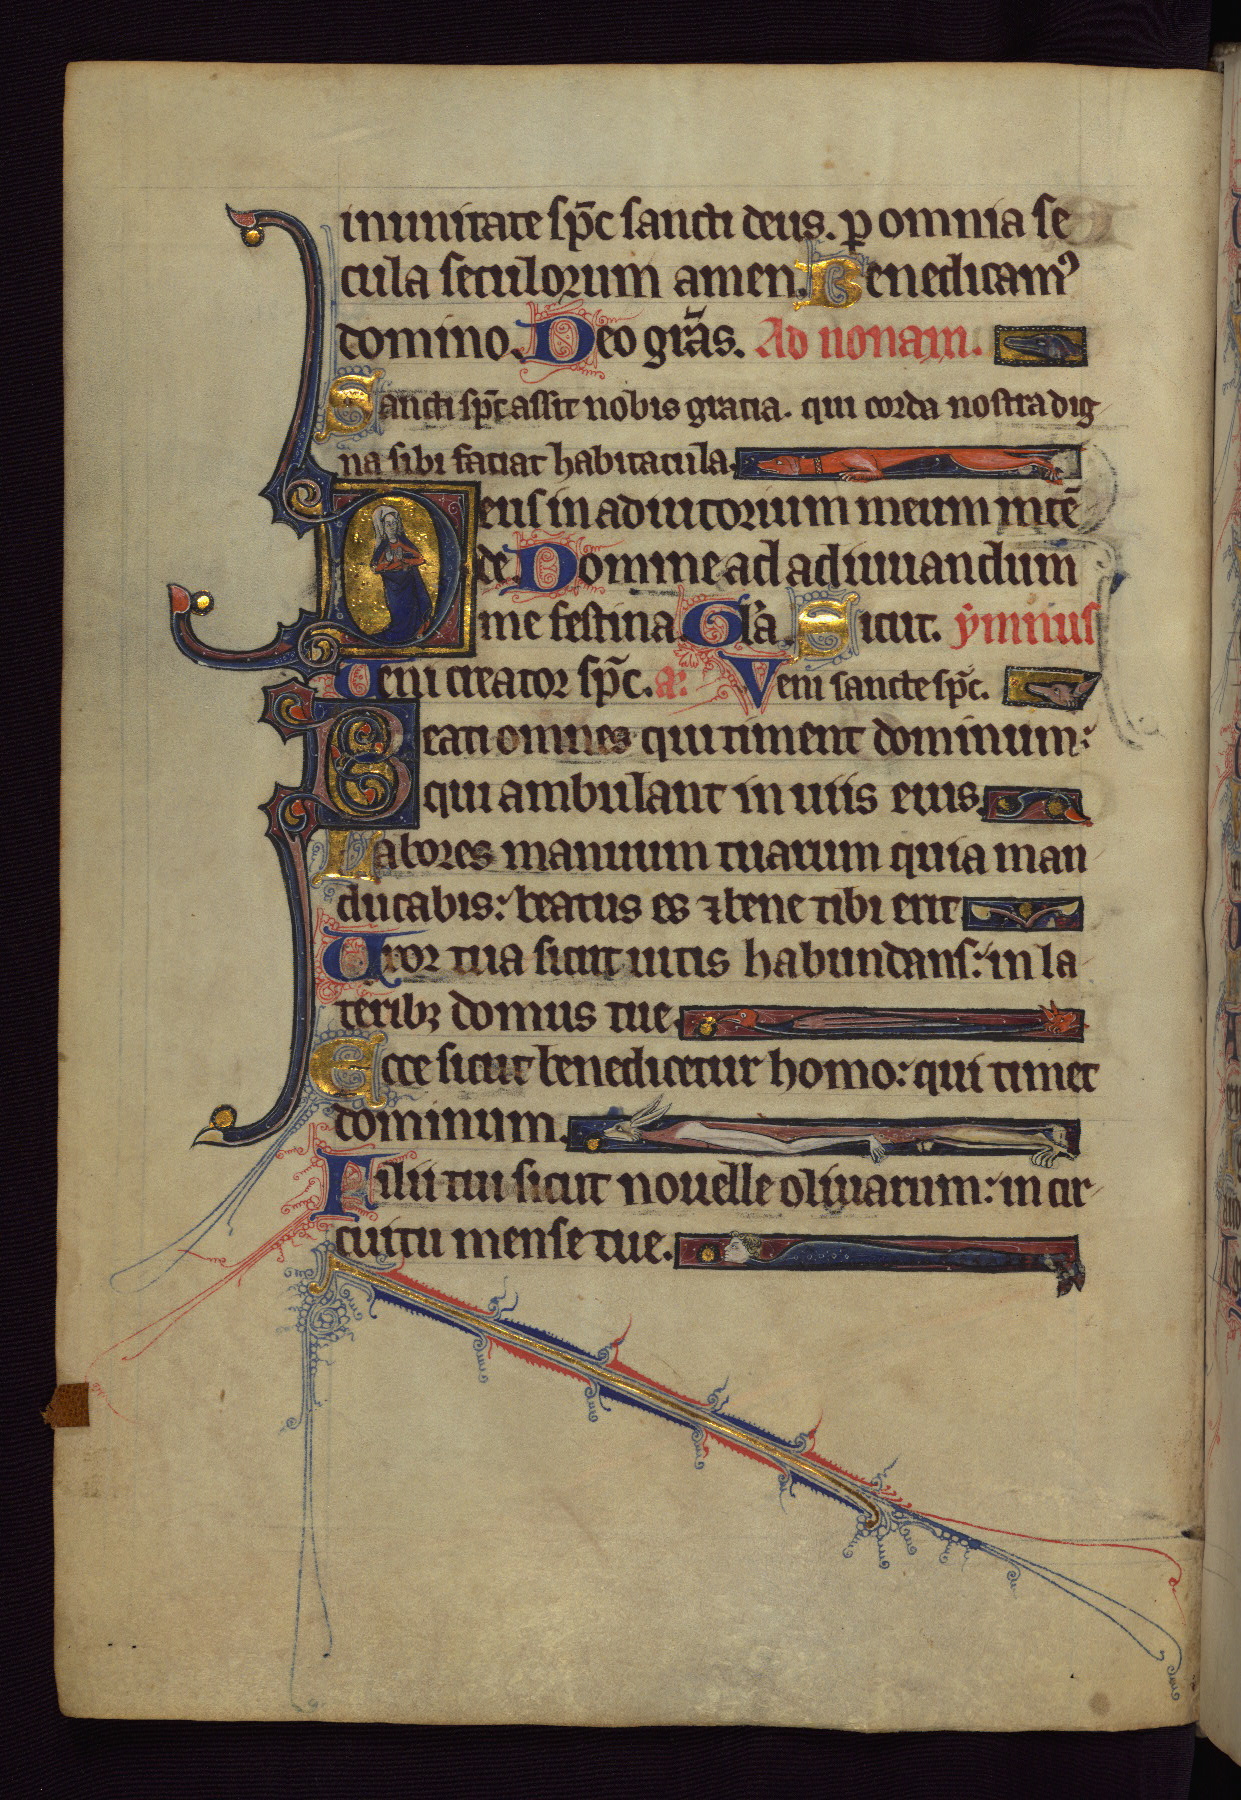 in unitate sp̄c sancti deus. ꝑ omnia se
cula seculorum amen. Benedicamꝰ
domino. Deo gr̄as. Ad nonam.
Sancti sp̄c assit nobis gracia. qui corda nostra dig
na sibi faciat habitacula.
Deus in adiutorium meum intē
de. Domine ad adiuuandum
me festina. Gl̄a. Sicut. ymnus
Ueni creator sp̄c. a. Veni sancte sp̄c.
Beati omnes qui timent dominum:
qui ambulant in uiis eius.
Labores manuum tuarum quia man
ducabis: beatus es ⁊ bene tibi erit
Uxor tua sicut uitis habundans: in la
teribꝫ domus tue.
Ecce sicut benedicetur homo: qui timet
dominum.
Filii tui sicut nouelle oliuarum: in cir
cuitu mense tue.